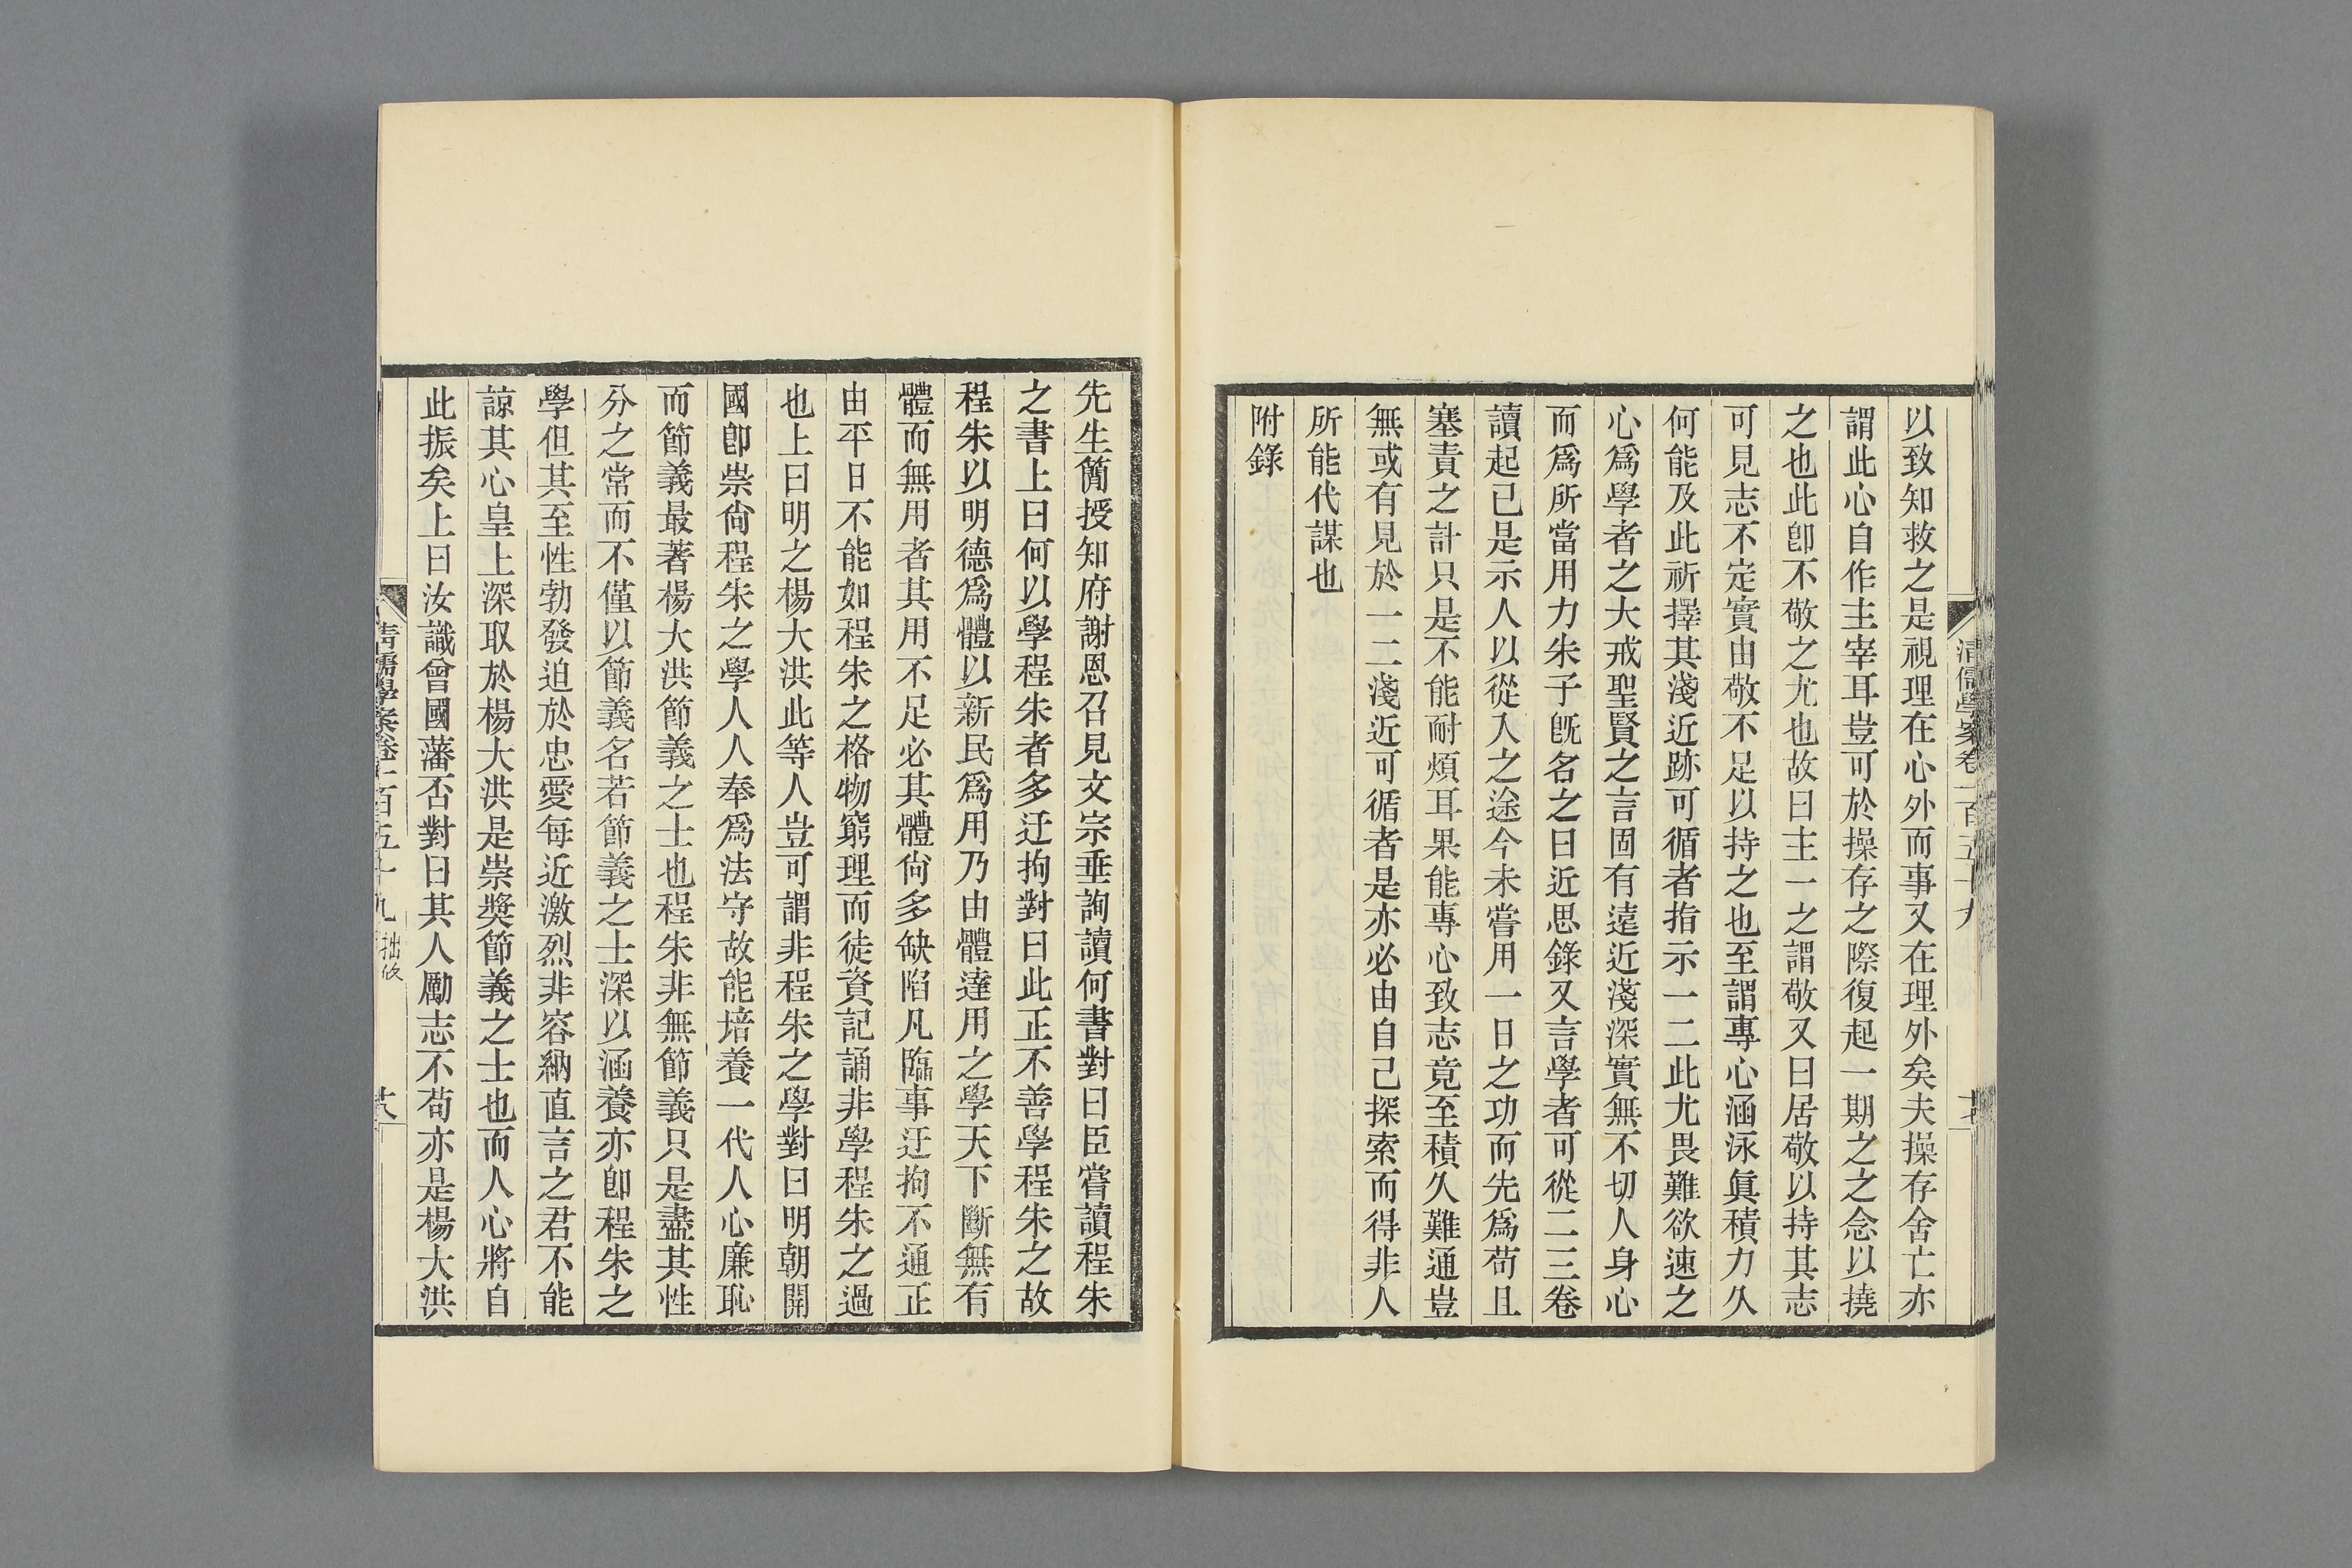 清儒學案卷一百五十九
十七
以致知救之是視理在心外而事又在理外矣夫操存舍亡亦
謂此心自作主宰耳豈可於操存之際復起一期之之念以撓
之也此卽不敬之尤也故曰主一之謂敬又曰居敬以持其志
可見志不定實由敬不足以持之也至謂專心涵泳眞積力久
何能及此祈擇其淺近跡可循者指示一二此尤畏難欲速之
心爲學者之大戒聖賢之言固有遠近淺深實無不切人身心
而爲所當用力朱子旣名之曰近思錄又言學者可從二三卷
讀起已是示人以從入之途今未嘗用一日之功而先爲苟且
塞責之計只是不能耐煩耳果能專心致志竟至積久難通豈
無或有見於一二淺近可循者是亦必由自己探索而得非人
所能代謀也
附錄
先生簡授知府謝恩召見文宗垂詢讀何書對曰臣嘗讀程朱
之書上曰何以學程朱者多迂拘對曰此正不善學程朱之故
程朱以明德爲體以新民爲用乃由體達用之學天下斷無有
體而無用者其用不足必其體尙多缺陷凡臨事迂拘不通正
由平日不能如程朱之格物窮理而徒資記誦非學程朱之過
也上曰明之楊大洪此等人豈可謂非程朱之學對曰明朝開
國卽崇尙程朱之學人人奉爲法守故能培養一代人心廉恥
而節義最著楊大洪節義之士也程朱非無節義只是盡其性
分之常而不僅以節義名若節義之士深以涵養亦卽程朱之
學但其至性勃發迫於忠愛每近激烈非容納直言之君不能
諒其心皇上深取於楊大洪是崇奬節義之士也而人心將自
此振矣上曰汝識曾國藩否對曰其人勵志不苟亦是楊大洪
清儒學案卷一百五十九 拙修
十八